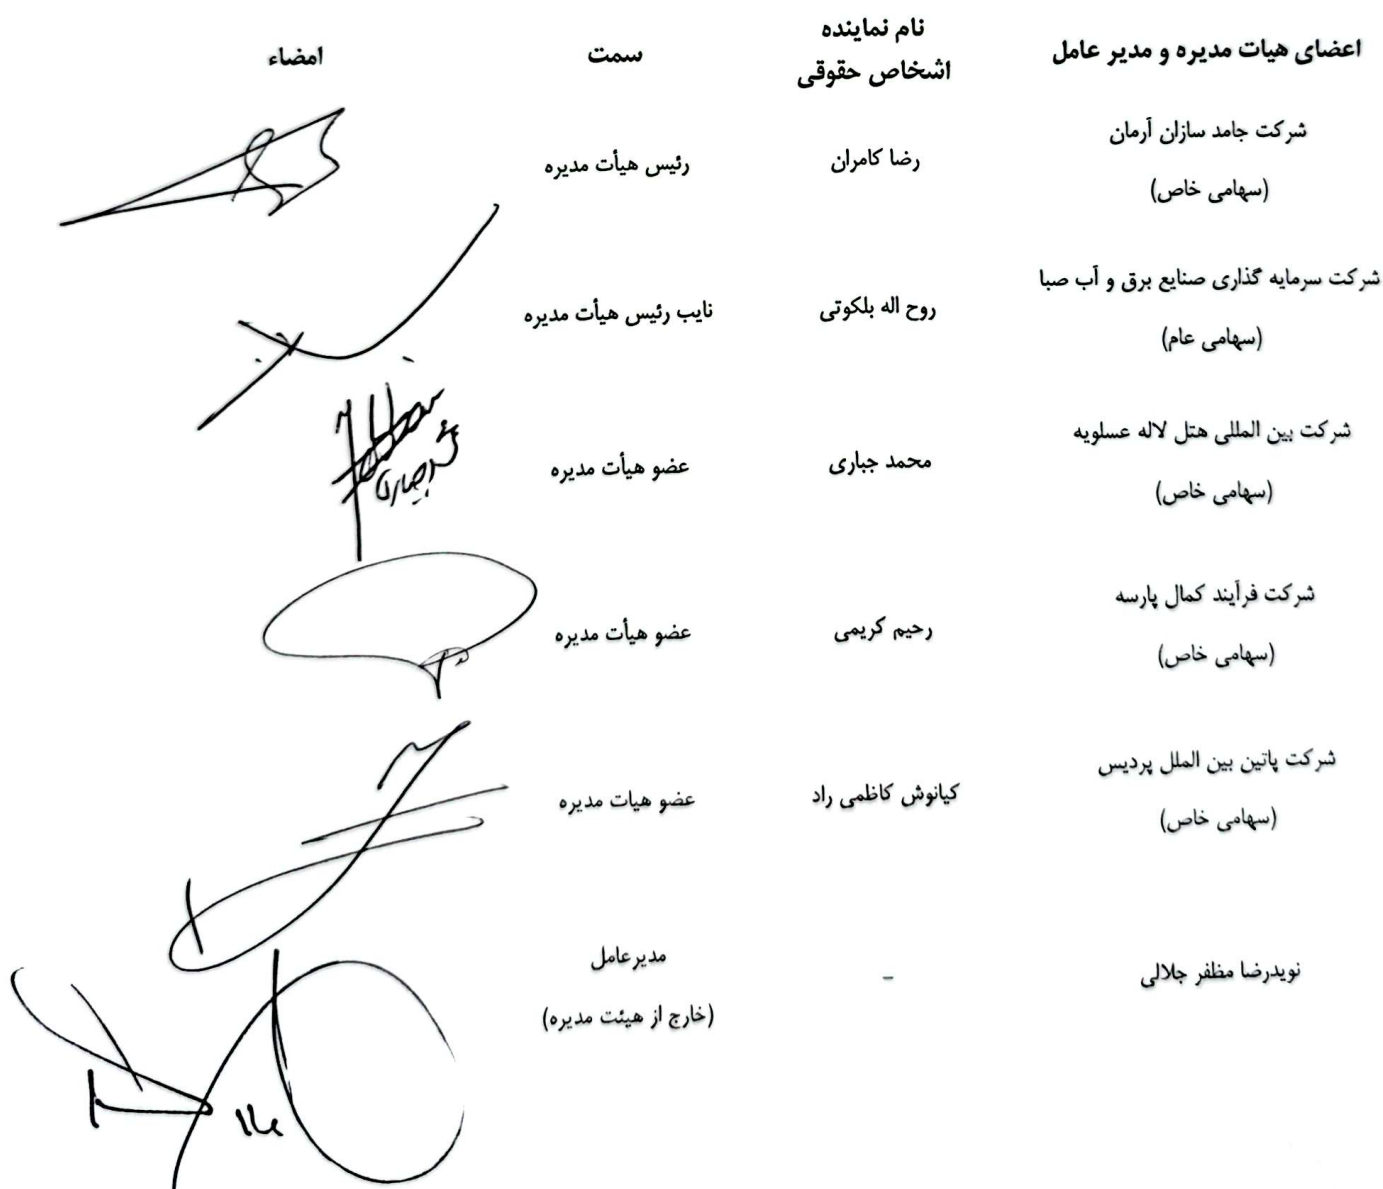 اعضای هیات مدیره و مدیر عامل
نام نماینده
اشخاص حقوقی
سمت
امضاء
شرکت جامد سازان آرمان
(سهامی خاص)
رضا کامران
رئیس هیأت مدیره
شرکت سرمایه گذاری صنایع برق و آب صبا
(سهامی عام)
روح اله بلکوتی
نایب رئیس هیأت مدیره
شرکت بین المللی هتل لاله عسلویه
(سهامی خاص)
محمد جباری
عضو هیأت مدیره
شرکت فرآیند کمال پارسه
(سهامی خاص)
رحیم کریمی
عضو هیأت مدیره
شرکت پاتین بین الملل پردیس
(سهامی خاص)
کیانوش کاظمی راد
عضو هیات مدیره
نویدرضا مظفر جلالی
-
مدیرعامل
(خارج از هیئت مدیره)